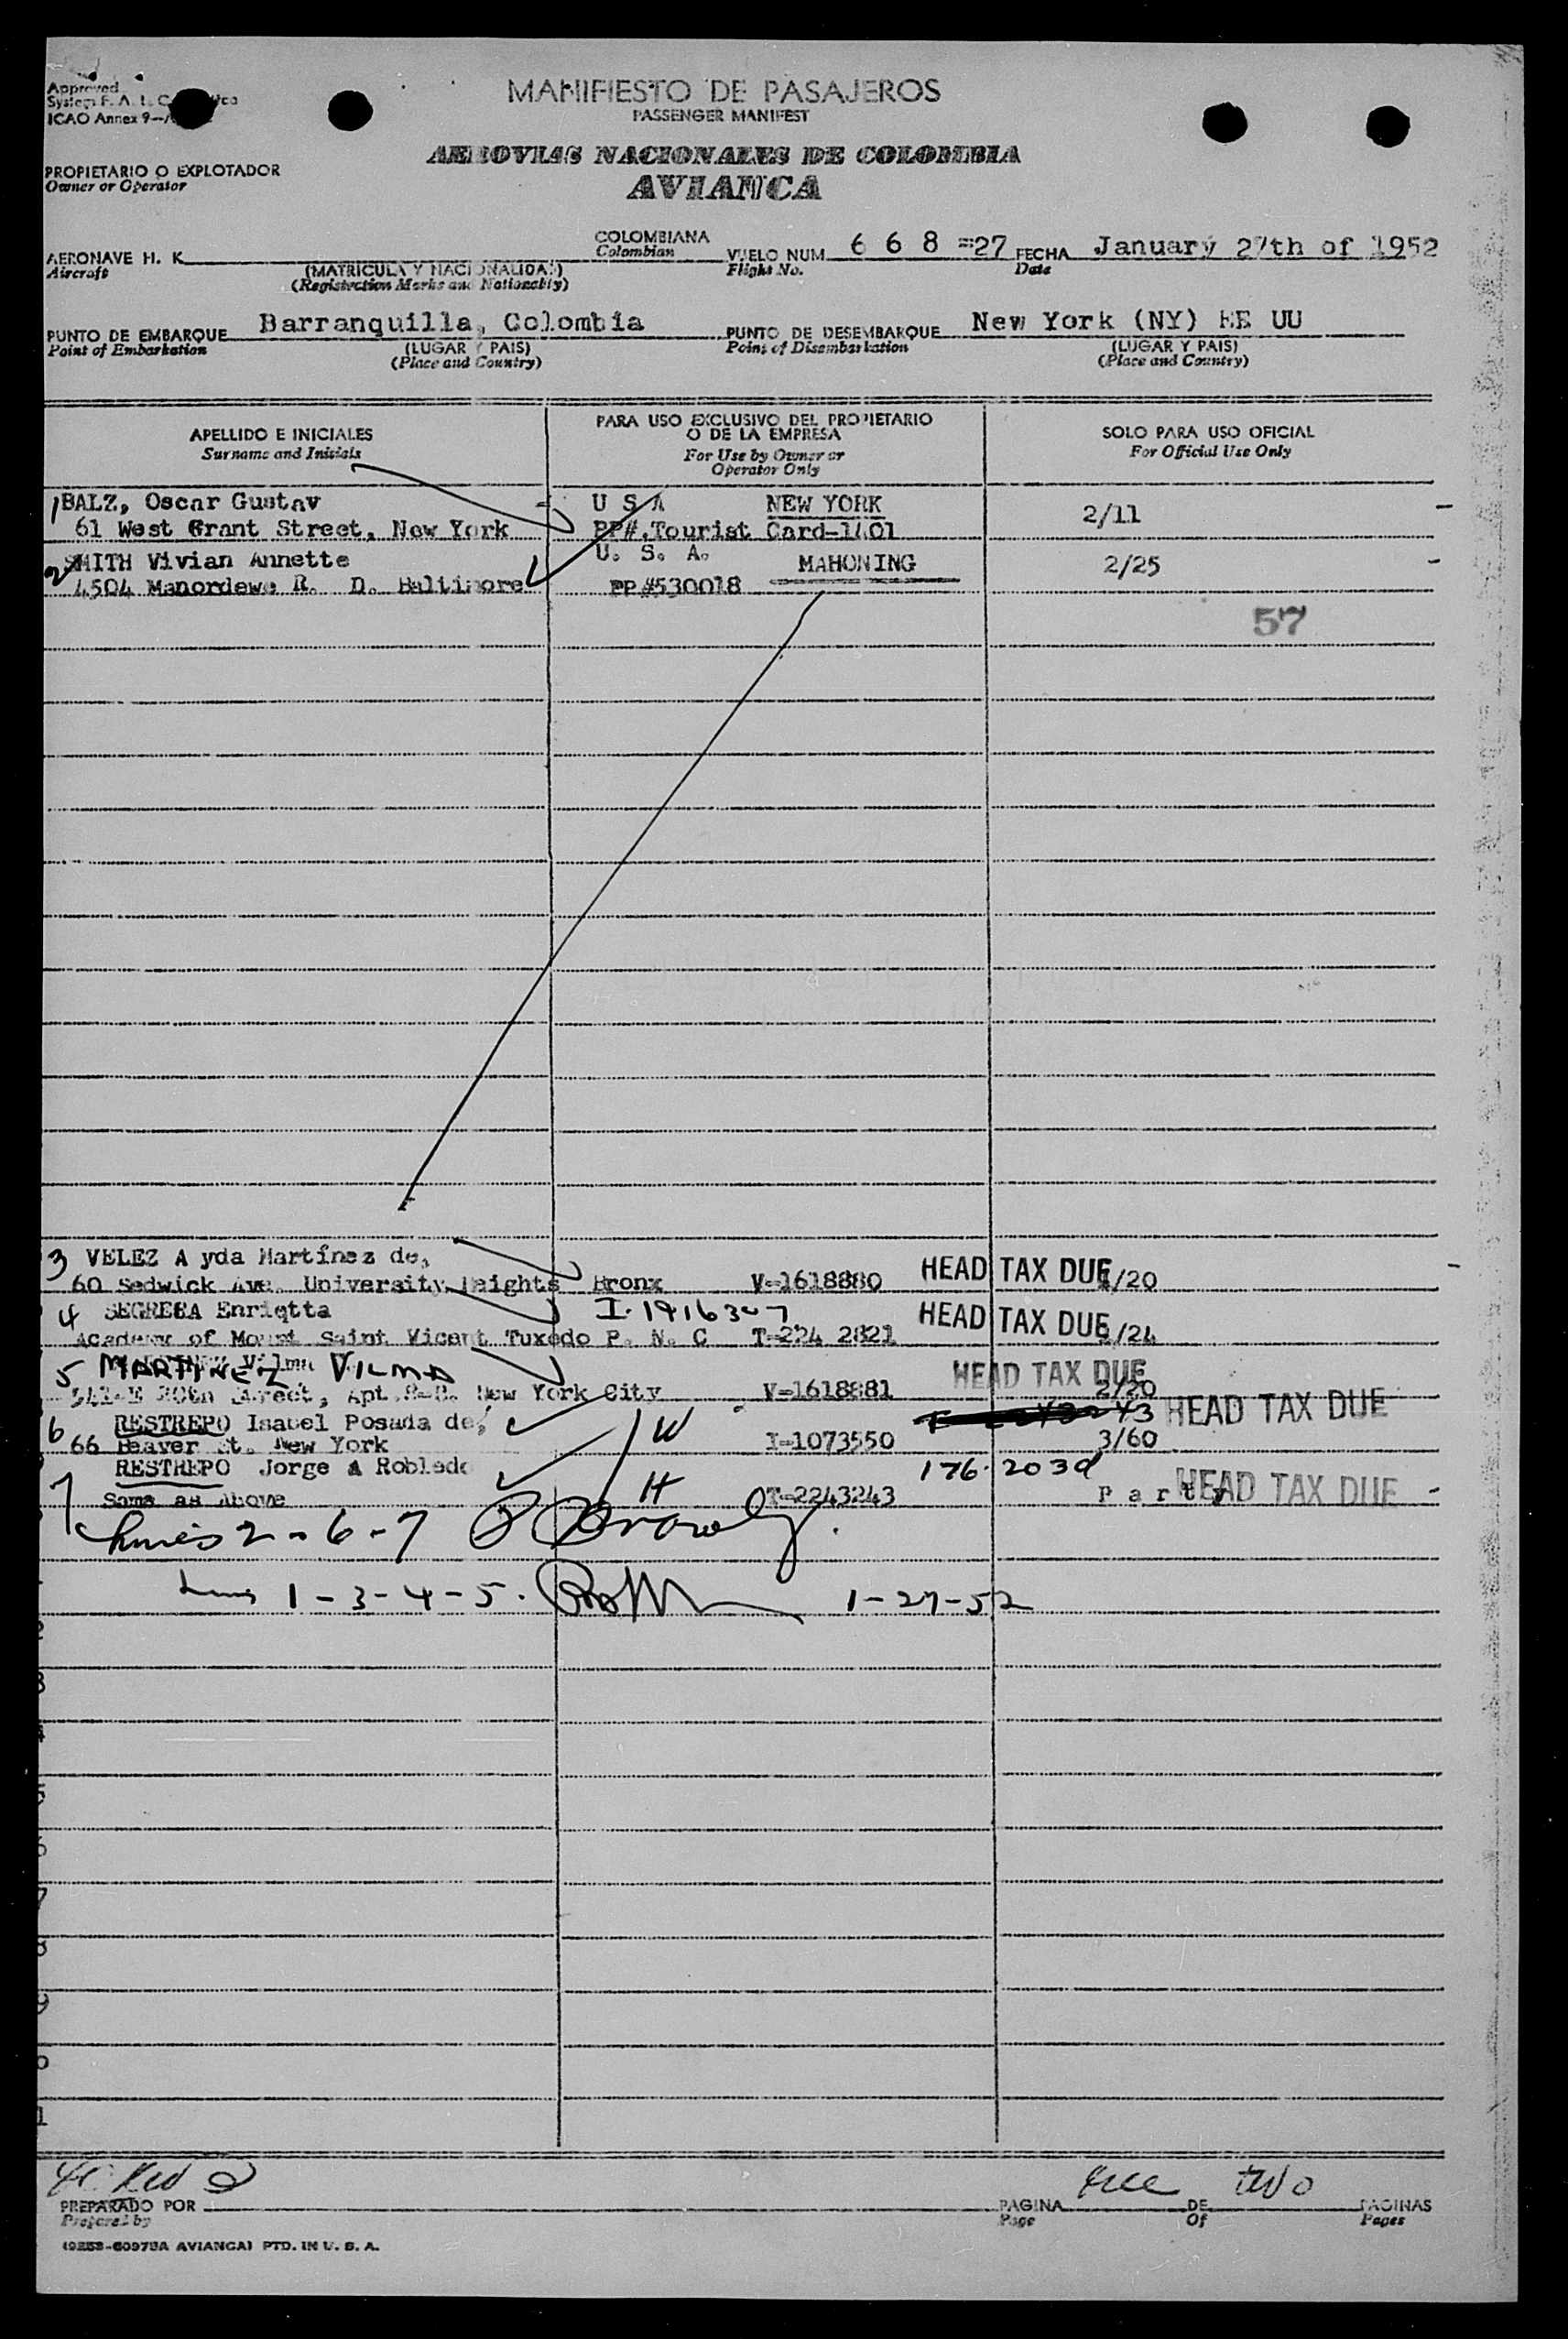 Approved
System F. A. L.
ICAO Annex 9
MANIFIESTO DE PASAJEROS
PASSENGER MANIFEST
PROPIETARIO O EXPLOTADOR
Owner or Operator
AEROVIAS NACIONALES DE COLOMBIA
AVIANCA
AERONAVE H. K.
Aircraft
(MATRICULA Y NACIONALIDAD)
(Registration Marks and Nationality)
COLOMBIANA
Colombian
VUELO NUM 6 6 8 =27
Flight No.
FECHA January 27th of 1952
Date
PUNTO DE EMBARQUE Barranquilla, Colombia
Point of Embarkation
(LUGAR Y PAIS)
(Place and Country)
PUNTO DE DESEMBARQUE New York (NY) EE UU
Point of Disembarkation
(LUGAR Y PAIS)
(Place and Country)
APELLIDO E INICIALES
Surname and Initials
PARA USO EXCLUSIVO DEL PROPIETARIO
O DE LA EMPRESA
For Use by Owner or
Operator Only
SOLO PARA USO OFICIAL
For Official Use Only
1 BALZ, Oscar Gustav U S A NEW YORK 2/11
61 West Grant Street, New York PP#.Tourist Card-1401
2 SMITH Vivian Annette U. S. A. MAHONING 2/25
4504 Manordewe R. D. Baltimore PP#530018
57
3 VELEZ A yda Martínez de,
60 Sedwick Ave. University Heights Bronx V-1618880 HEAD TAX DUE /20
4 Enrietta I-1916307
Academy of Mount Saint Vicent Tuxedo P. N. C T-224 2821 HEAD TAX DUE /24
5 MARTINEZ VILMA
Street, Apt New York City V-1618881 HEAD TAX DUE 2/20
6 RESTREPO Isabel Posada de, W HEAD TAX DUE
66 Beaver St. New York I-1073550 3/60
7 RESTREPO Jorge A Robledo 176-2039
Same as Above H T-2243243 Party HEAD TAX DUE
Lines 2-6-7
1-3-4-5. 1-27-52
PREPARADO POR
Prepared by
PAGINA DE two PAGINAS
Page Of Pages
(9258-60978A AVIANCA) PTD. IN U. S. A.